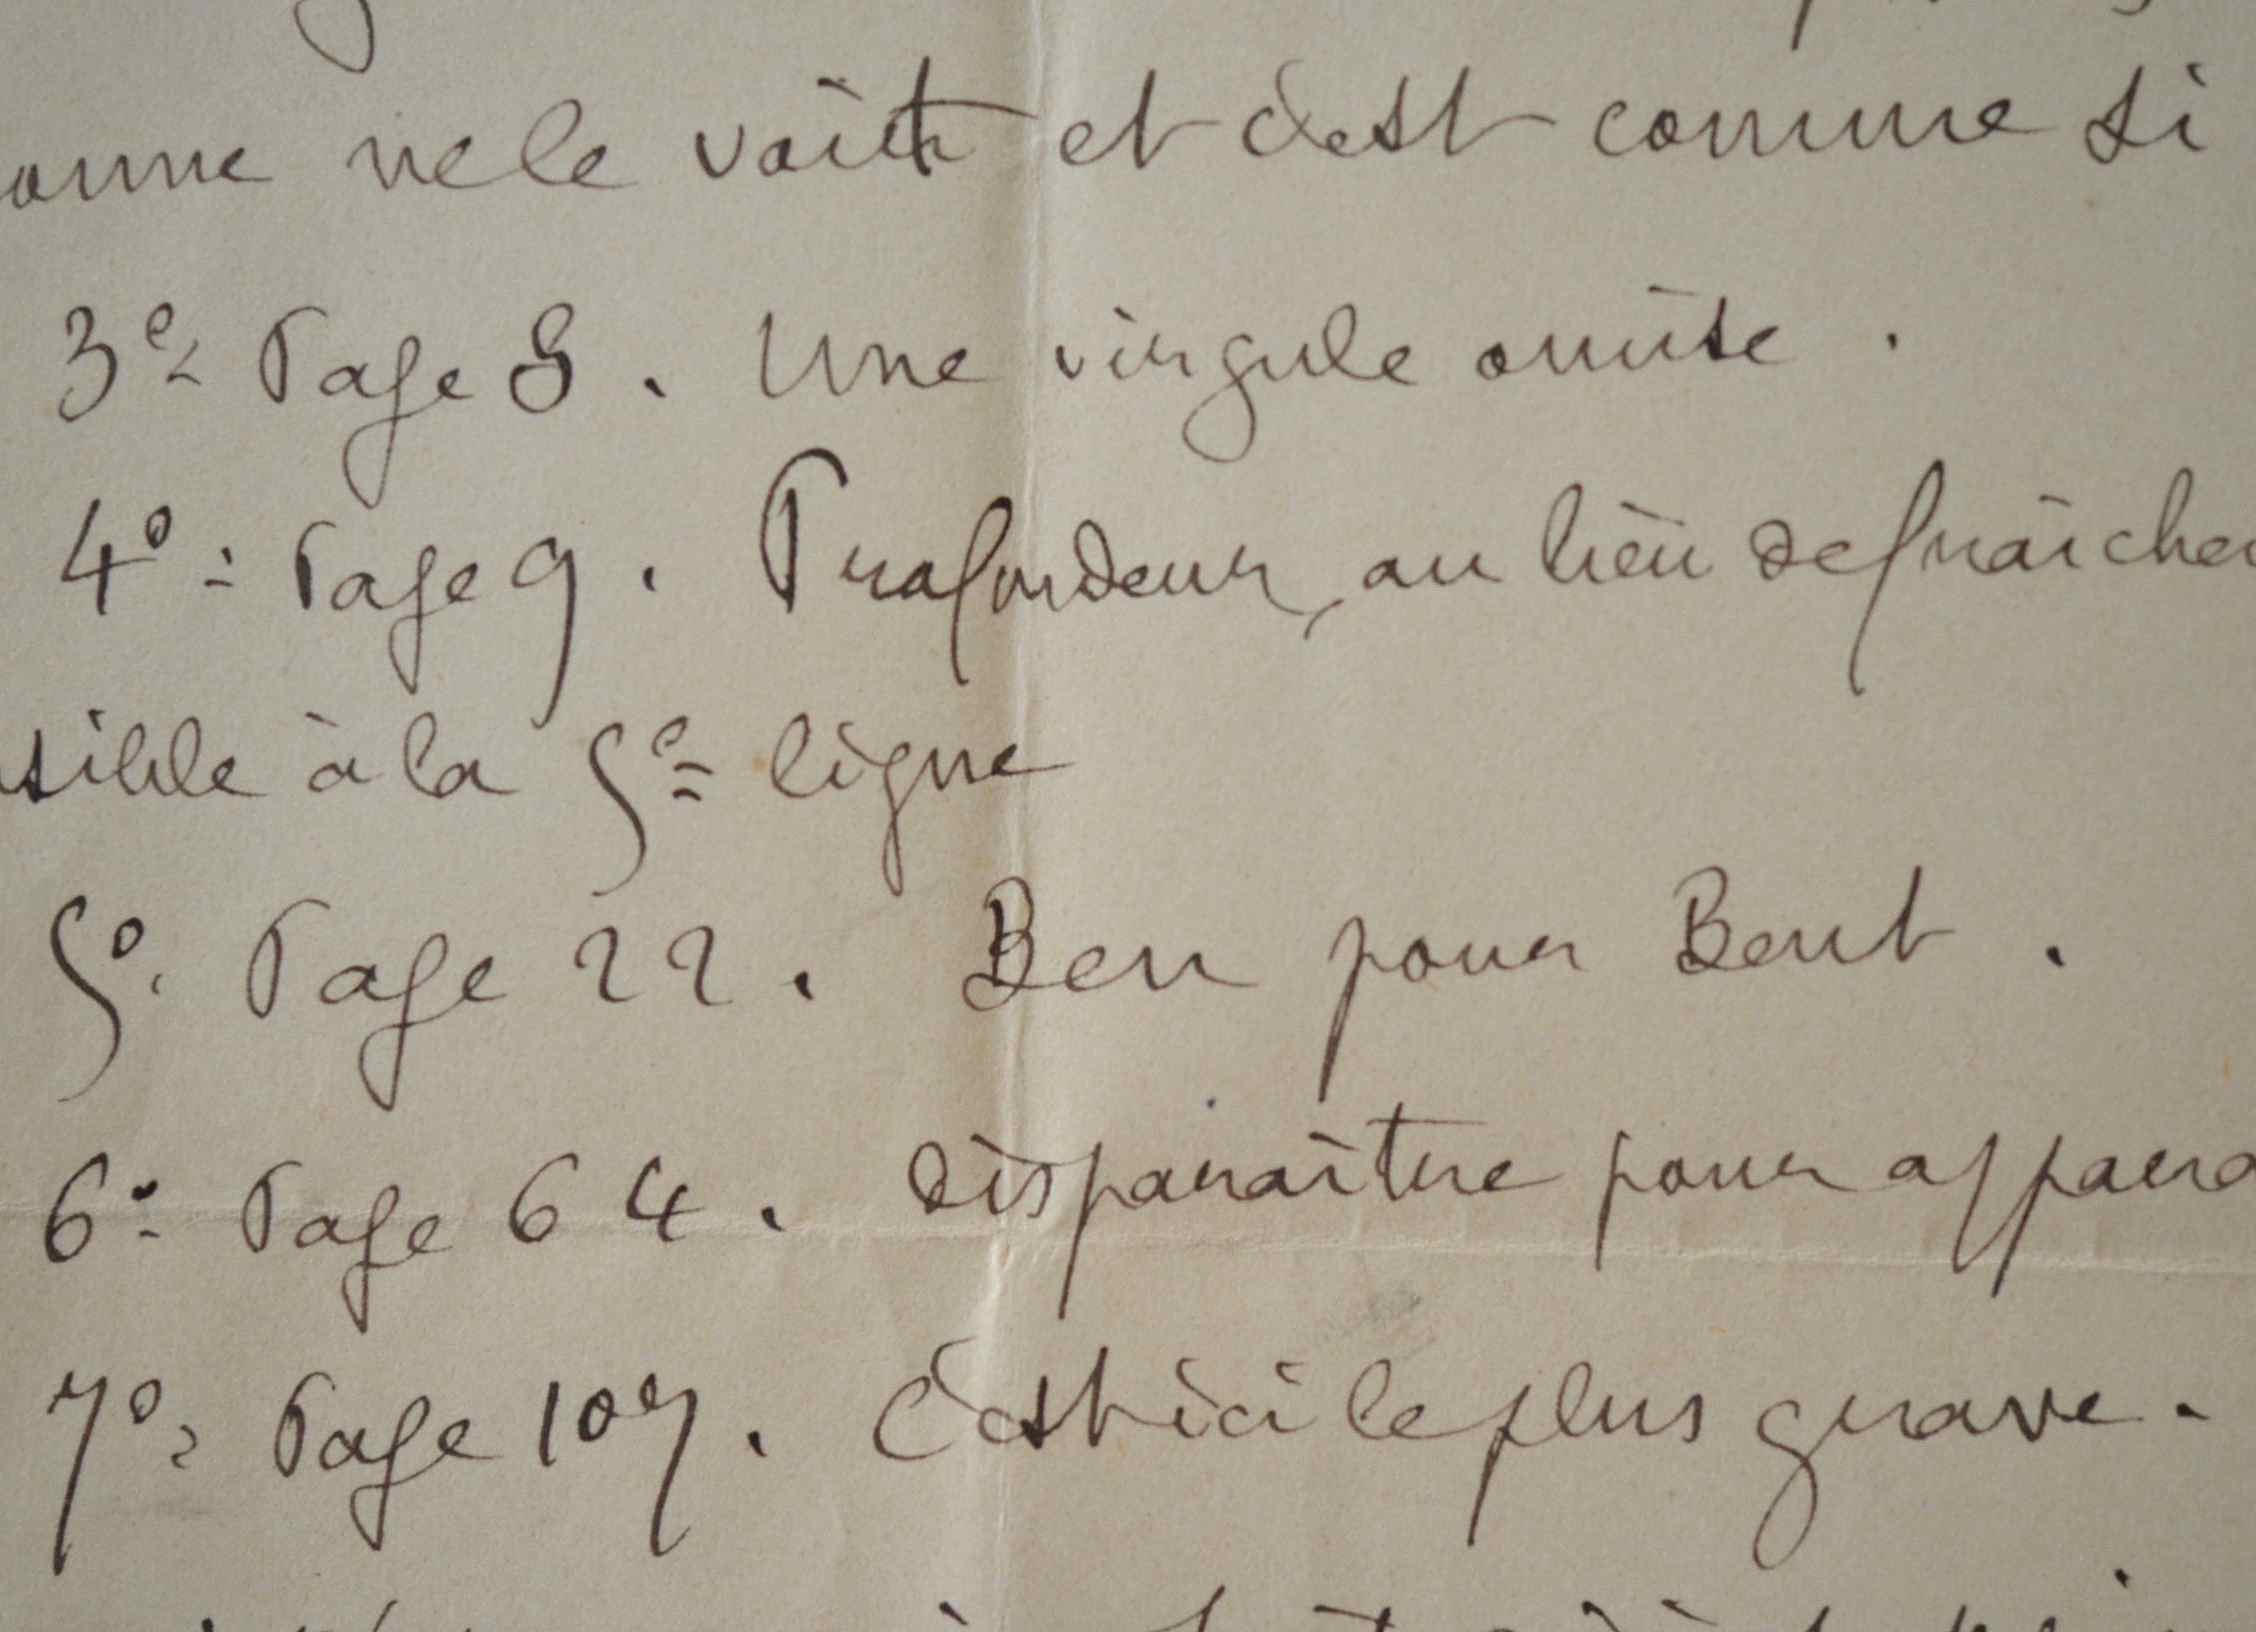 onne ne le voit et c'est comme si
3º Page 8. Une virgule omise.
4º - Page 9. Profondeur, au lieu de fraîcheu
sible à la 5e ligne
5º. Page 22. Ben pour Bent.
6º - Page 64. disparaître pour appara
7º - Page 107. C'est ici le plus grave.